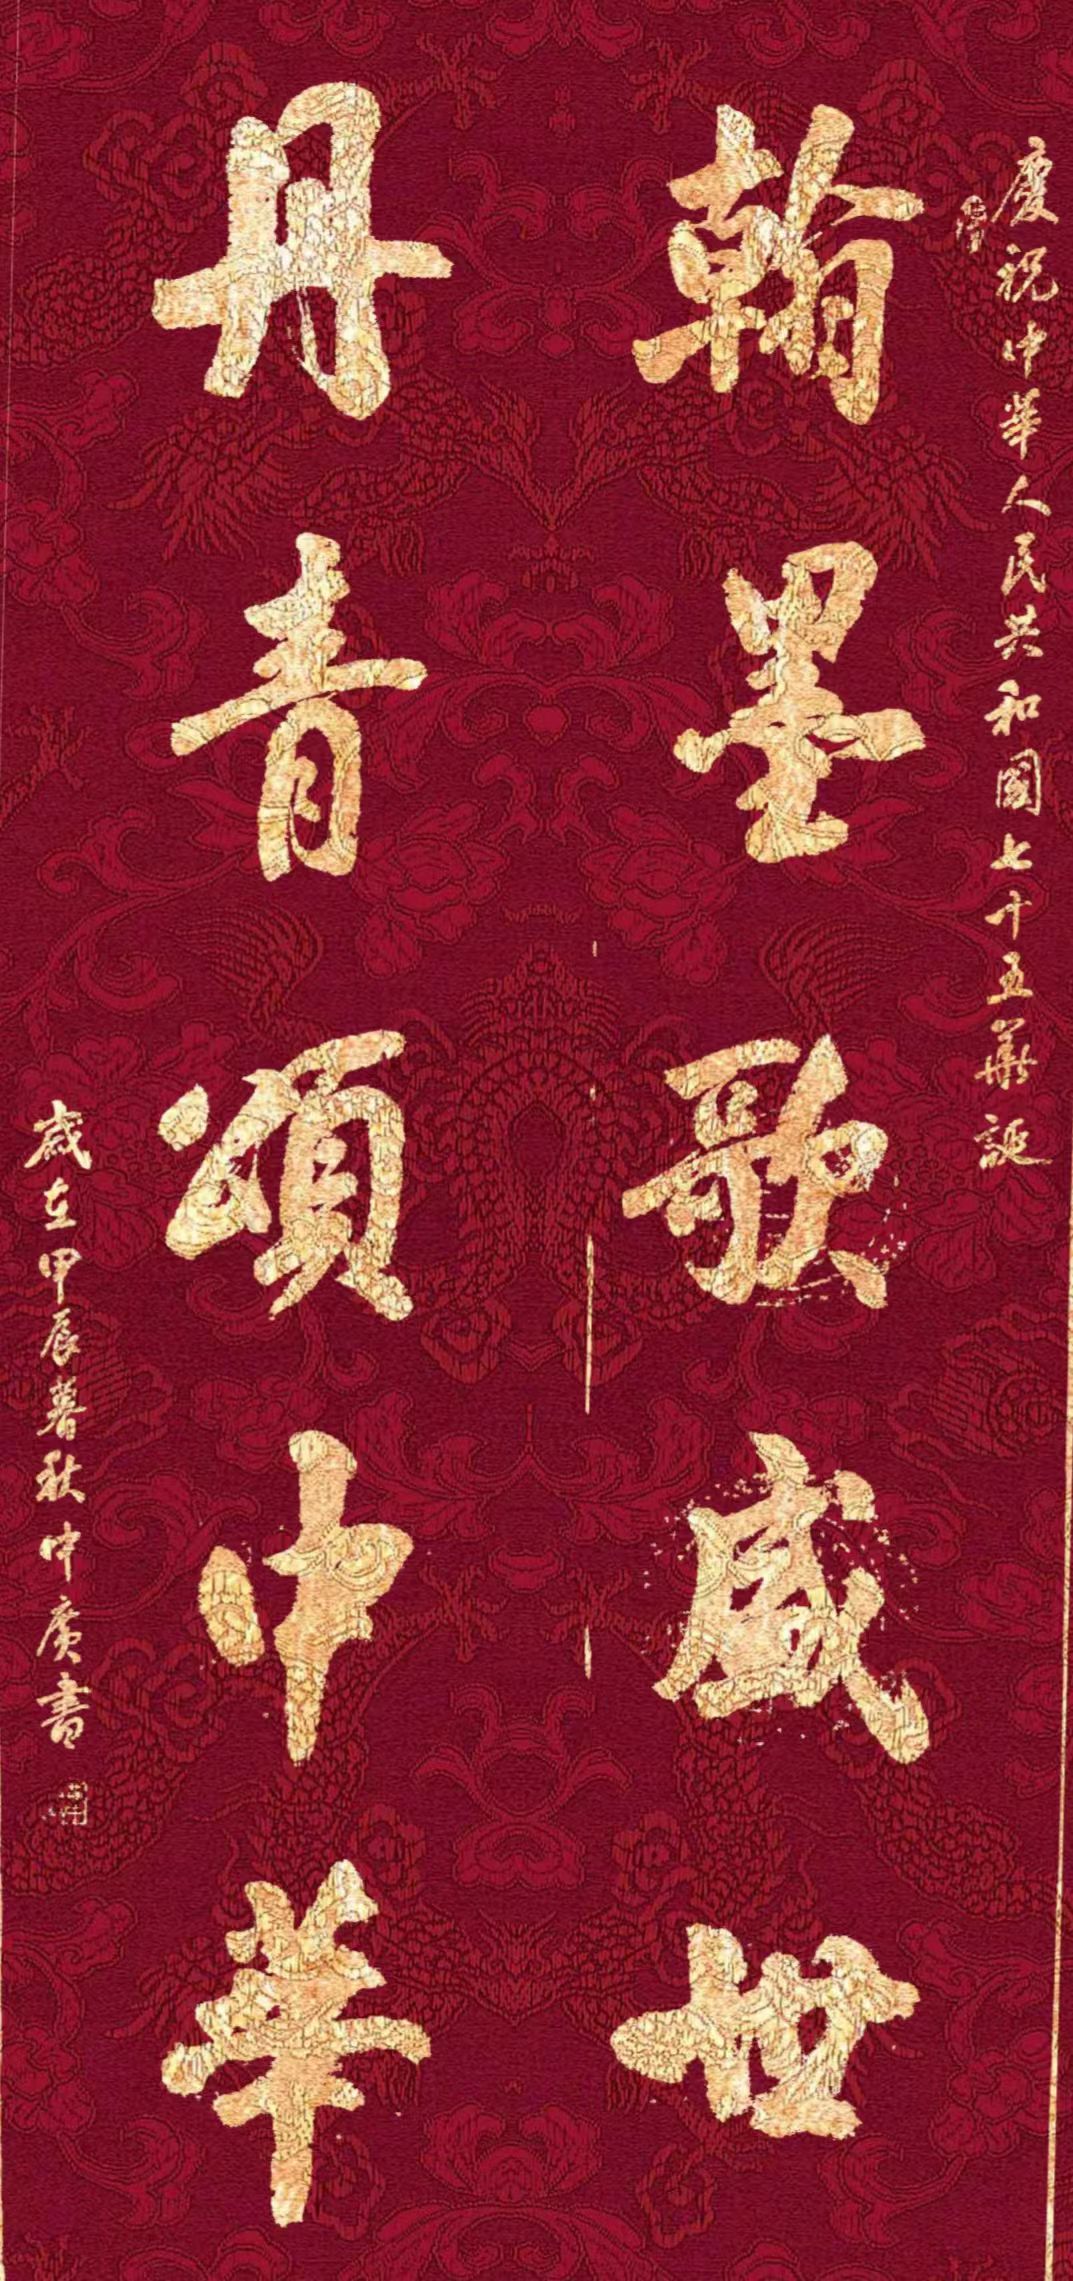 慶祝中華人民共和國七十五華誕
翰墨歌盛世
丹青頌中華
歲在甲辰暮秋中廣書